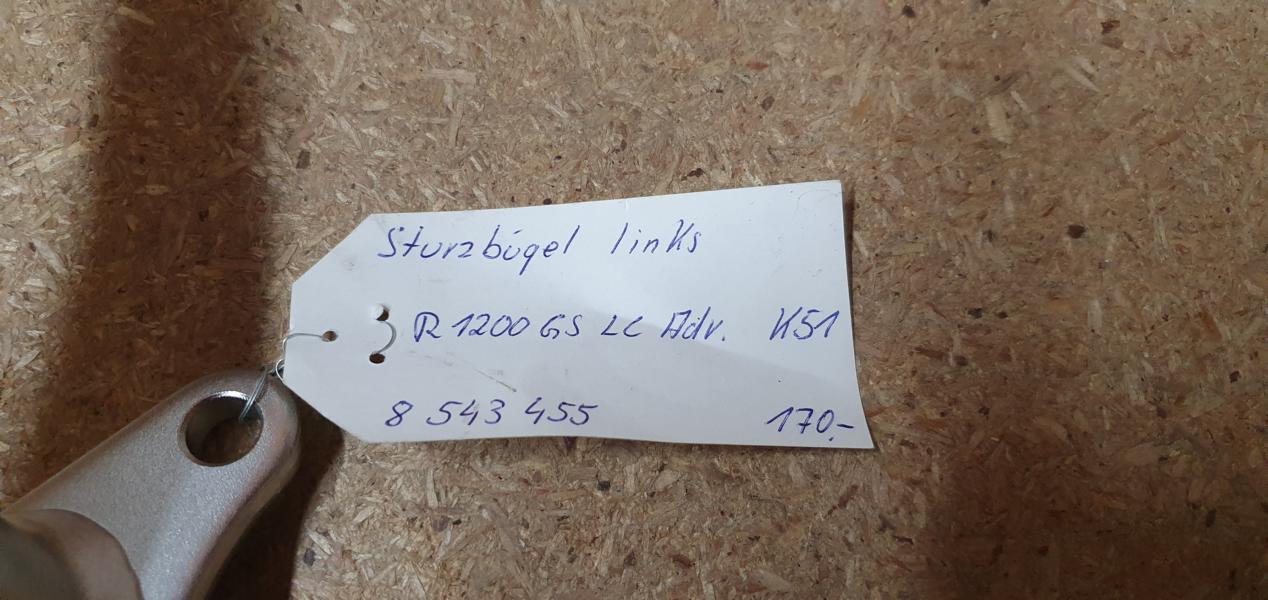 Sturzbügel links
R 1200 GS LC Adv. K51
8 543 455 170,-